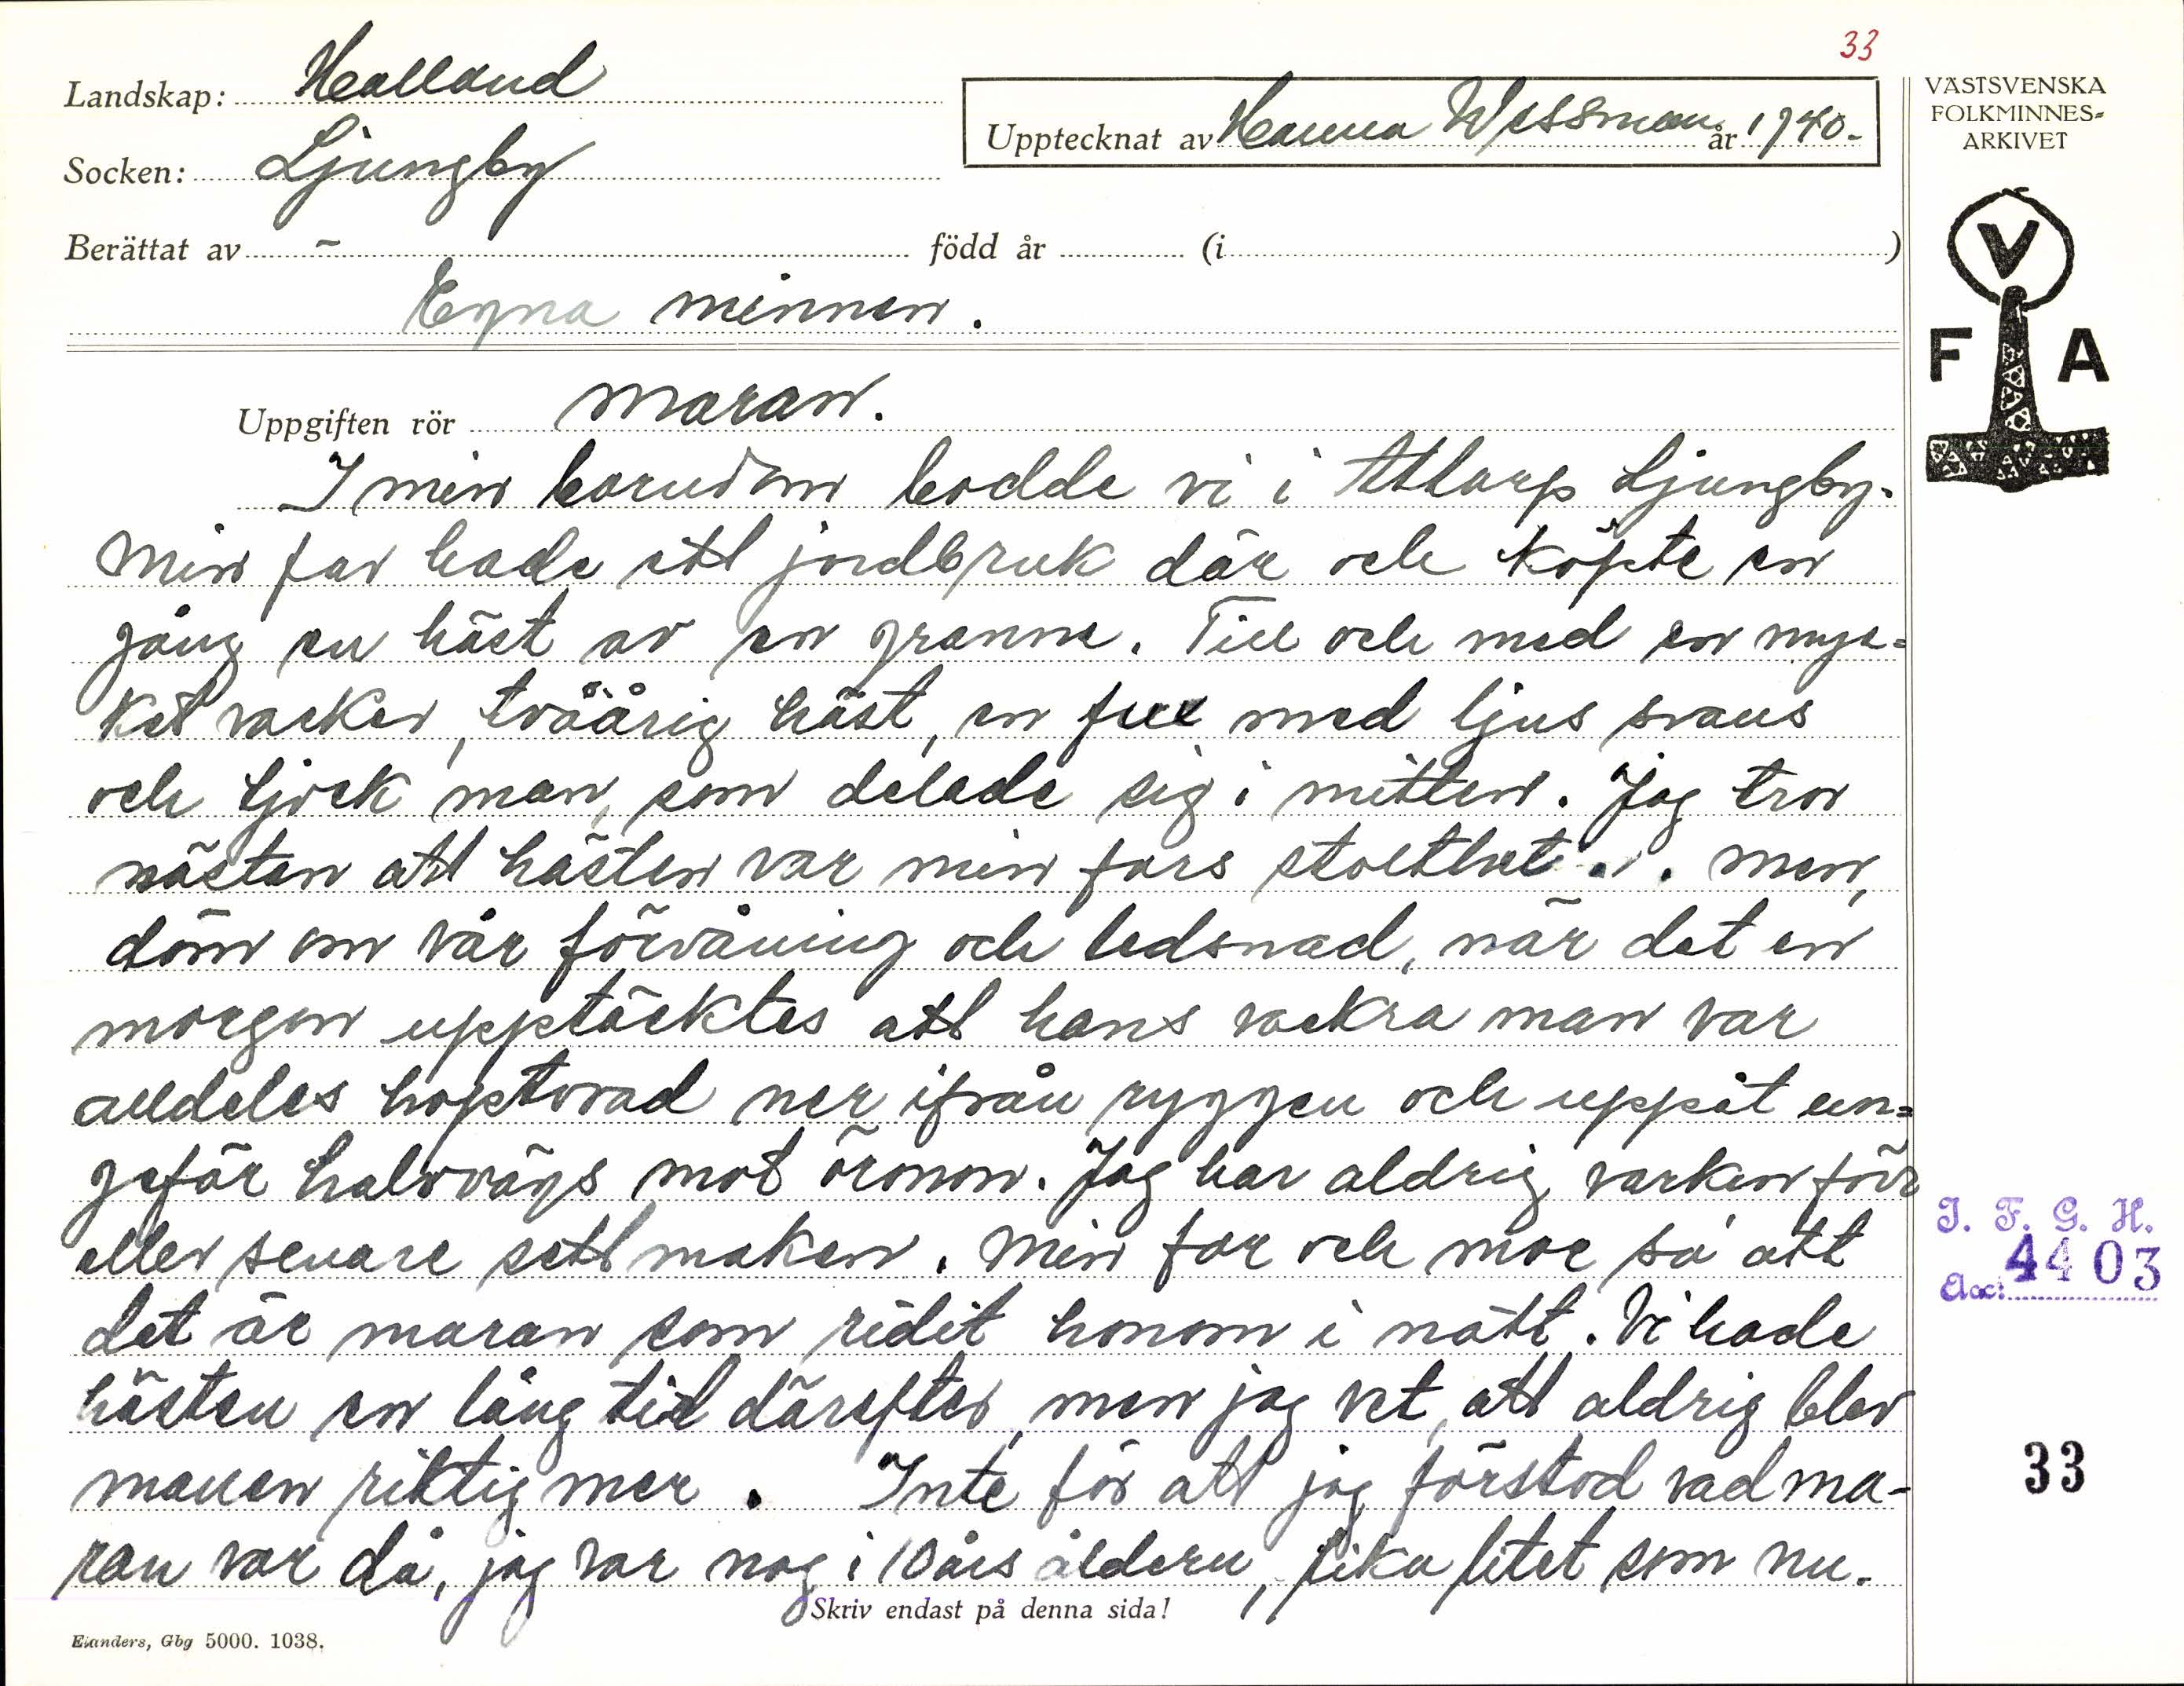 33
Landskap: Halland
Socken: Ljungby
Upptecknat av Hanna Wessman år 1940.
VÄSTSVENSKA
FOLKMINNES-
ARKIVET
V
F A
Berättat av - född år (i )
Egna minnen.
Uppgiften rör maran.
I min barndom bodde vi i Attarp Ljungby.
Min far hade ett jordbruk där och köpte en
gång en häst av en granne. Till och med en myc=
ket vacker, tvåårig häst, en fux med ljus svans
och tjock man, som delade sig i mitten. Jag tror
nästan att hästen var min fars stolthet. . Men,
döm om vår förvåning och ledsnad, när det en
morgon upptäcktes att hans vackra man var
alldeles hoptovad ner ifrån ryggen och uppåt un=
gefär halvvägs mot öronen. Jag har aldrig varken förr
eller senare sett maken. Min far och mor sa att
det är maran som ridit honom i natt. Vi hade
hästen en lång tid därefter, men jag vet, att aldrig blev
manen riktig mer. Inte för att jag förstod vad ma-
ran var då, jag var nog i 10 års åldern, lika litet som nu.
Skriv endast på denna sida!
Elanders, Gbg 5000. 1038.
I. F. G. H.
Acc: 4403
33